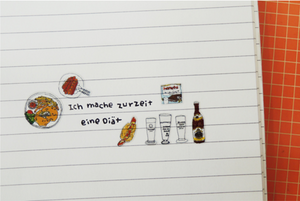 Ich mache zurzeit
eine Diät